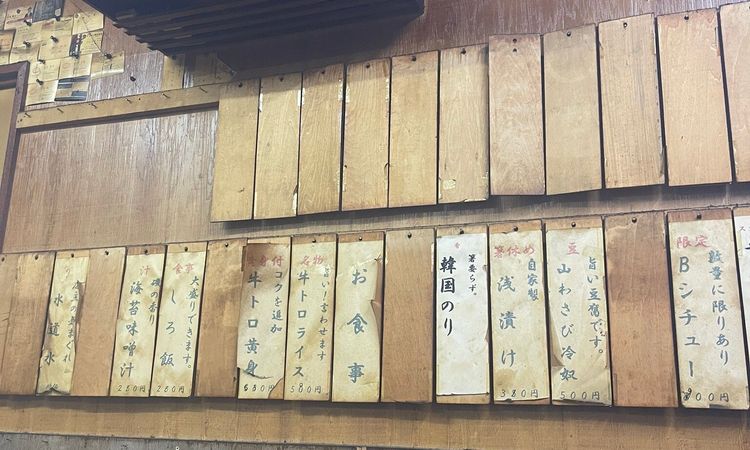 限定
数量に限りあり
Bシチュー
900円
豆
旨い豆腐です。
山わさび冷奴
500円
箸休め
自家製
浅漬け
380円
箸要らず。
韓国のり
お食事
名物
旨い!言わせます
牛トロライス
580円
黄身付
コクを追加
牛トロ黄身
630円
食事
大盛りできます。
しろ飯
280円
汁
磯の香り
海苔味噌汁
280円
水道水